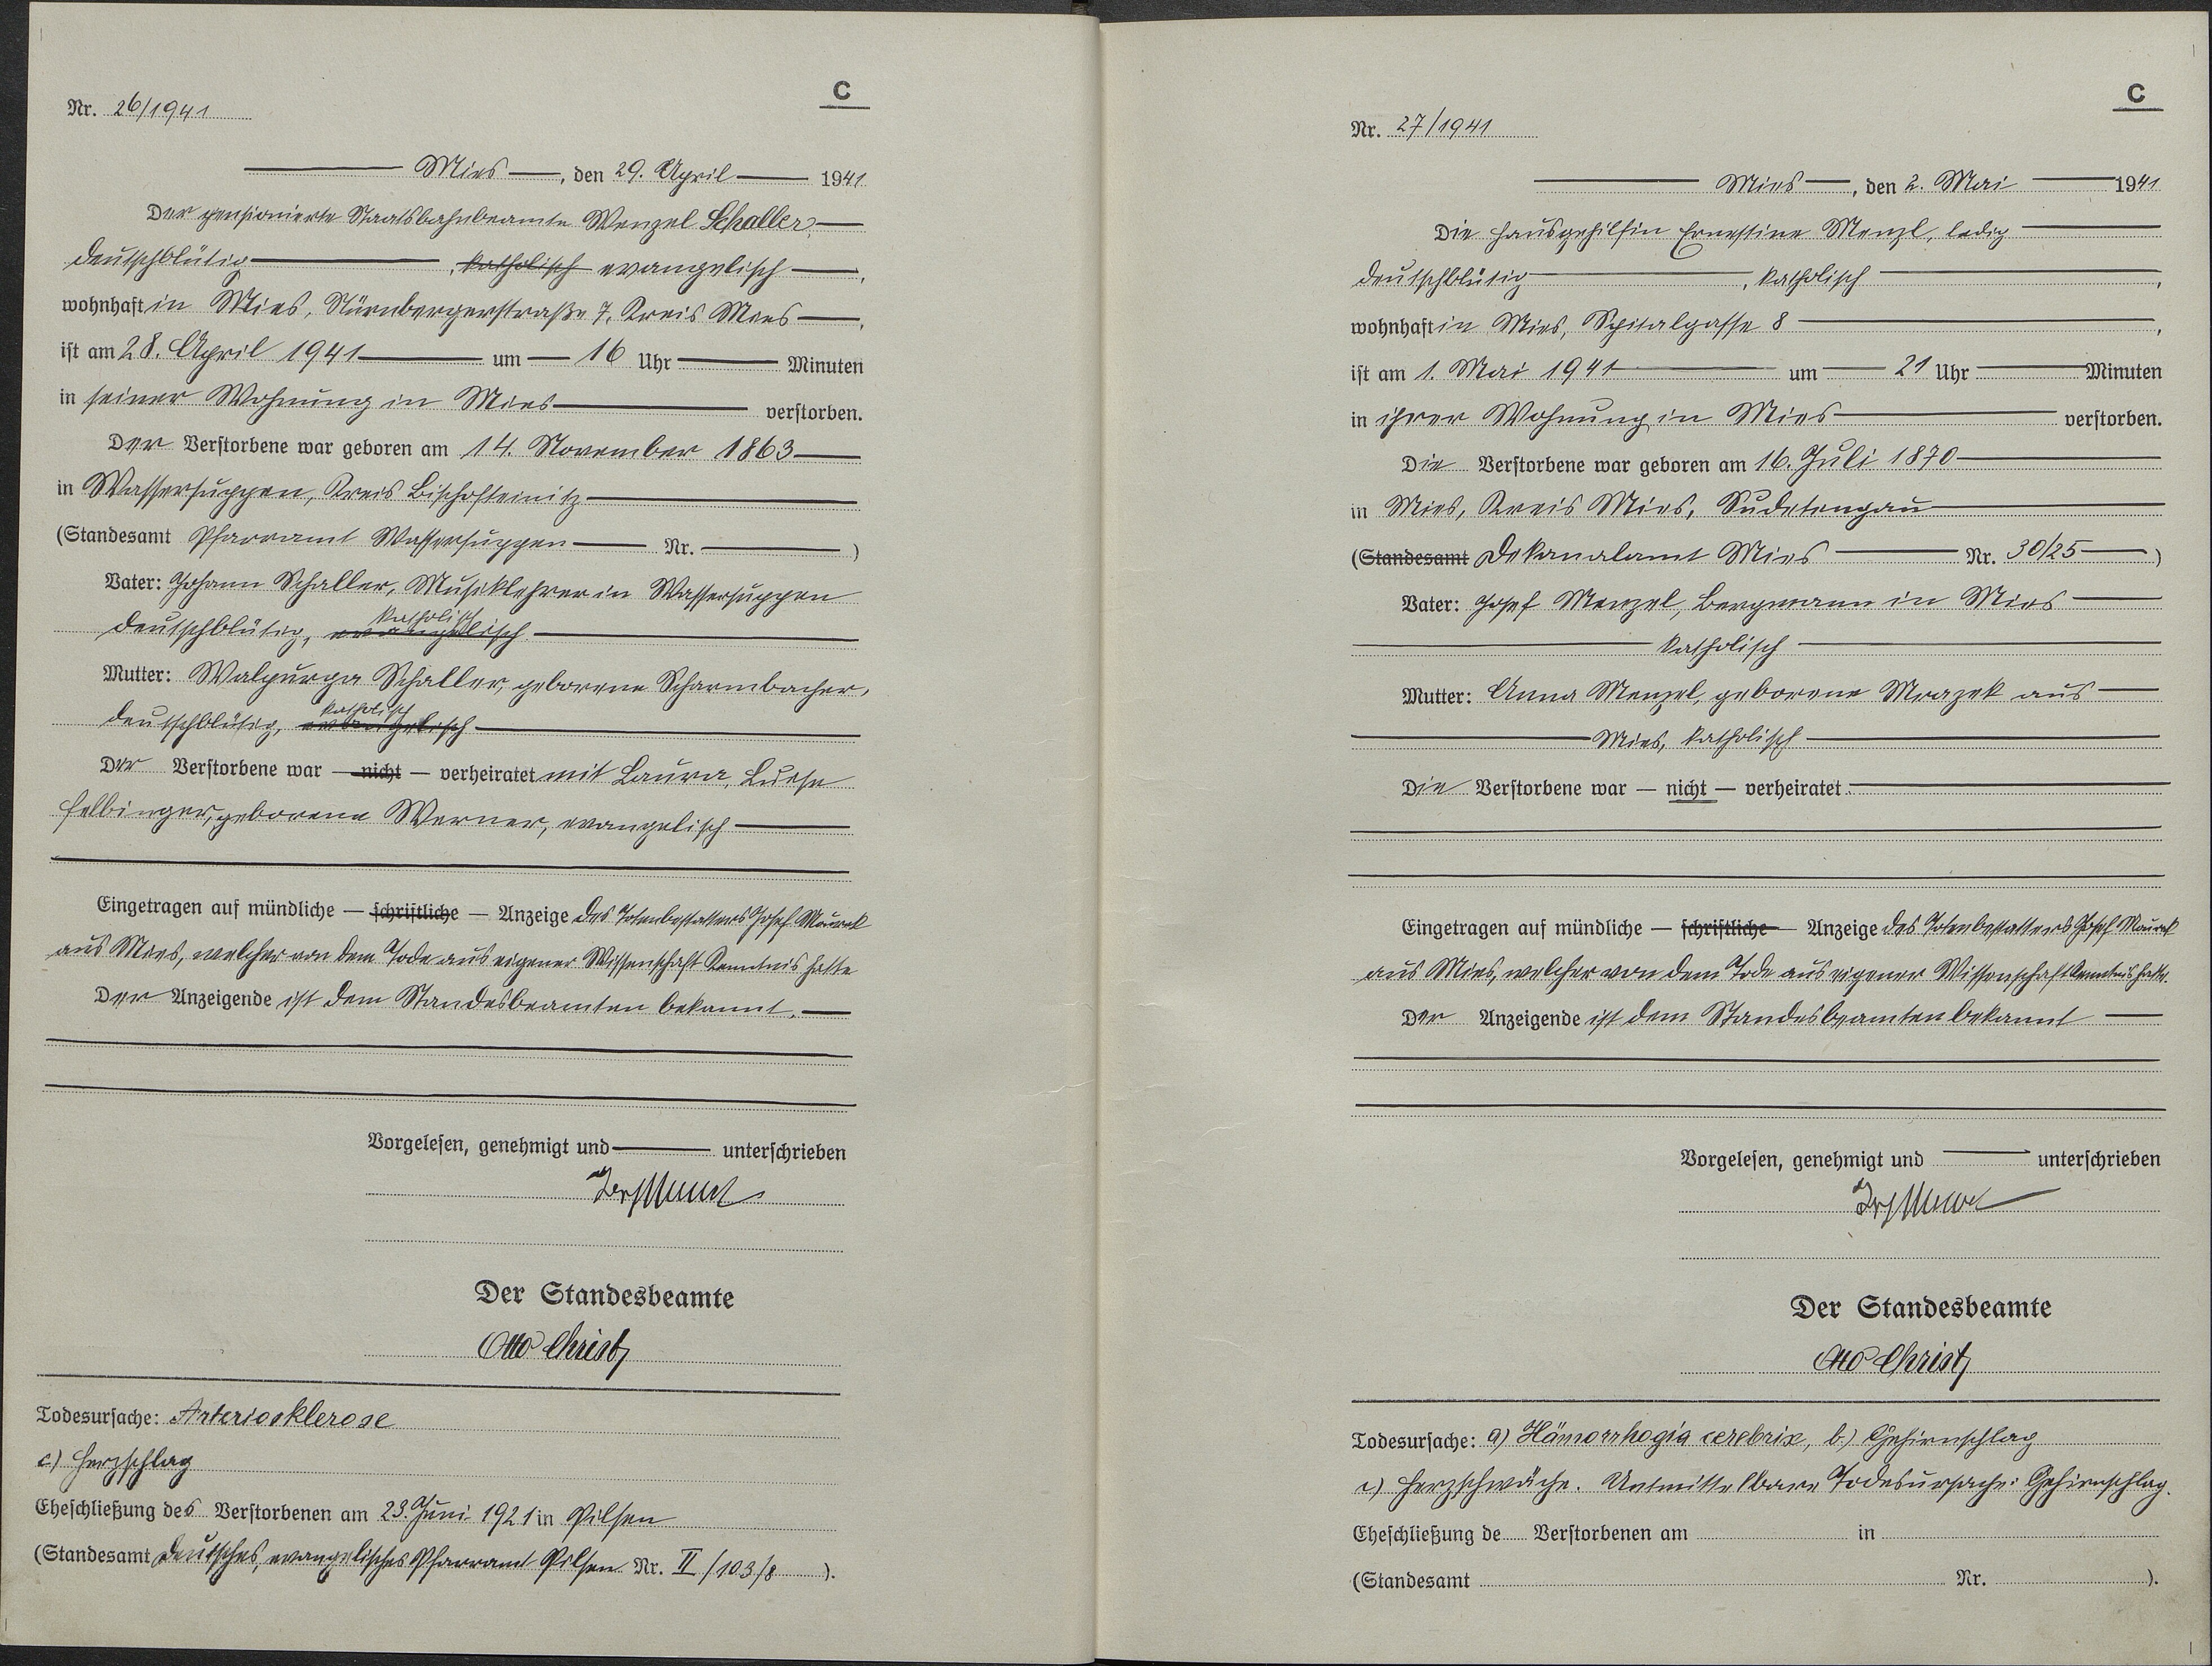 C
Nr. 26/1941
Mies, den 29. April 1941
Der pensionierte Staatsbahnbeamte Wenzel Schaller,
deutschblütig, katholisch evangelisch,
wohnhaft in Mies, Nürnbergerstraße 7, Kreis Mies,
ist am 28. April 1941 um 16 Uhr Minuten
in seiner Wohnung in Mies verstorben.
Der Verstorbene war geboren am 14. November 1863
in Wassersuppen, Kreis Bischofteinitz
(Standesamt Pfarramt Wassersuppen Nr. )
Vater: Johann Schaller, Musiklehrer in Wassersuppen
katholisch
deutschblütig, evangelisch
Mutter: Walpurga Schaller, geborene Scharmbacher,
katholisch
deutschblütig, evangelisch
Der Verstorbene war — nicht — verheiratet mit Laura, Luise
Felbinger, geborene Werner, evangelisch
Eingetragen auf mündliche — schriftliche — Anzeige des Totenbestatters Josef
aus Mies, welcher von dem Tode aus eigener Wissenschaft Kenntnis hatte
Der Anzeigende ist dem Standesbeamten bekannt.
Vorgelesen, genehmigt und unterschrieben
Der Standesbeamte
Otto Christ
Todesursache: Arteriosklerose
c) Herzschlag
Eheschließung des Verstorbenen am 23. Juni 1921 in Pilsen
(Standesamt Deutsches, evangelisches Pfarramt Pilsen Nr. II/103/8 ).
C
Nr. 27/1941
Mies, den 2. Mai 1941
Die Hausgehilfin Ernestine Menzl, ledig
deutschblütig, katholisch,
wohnhaft in Mies, Spitalgasse 8,
ist am 1. Mai 1941 um 21 Uhr Minuten
in ihrer Wohnung in Mies verstorben.
Die Verstorbene war geboren am 16. Juli 1870
in Mies, Kreis Mies, Sudetengau
(Standesamt Dekanalamt Mies Nr. 30/25 )
Vater: Josef Menzel, Bergmann in Mies
katholisch
Mutter: Anna Menzel, geborene Mrazek aus
Mies, katholisch
Die Verstorbene war — nicht — verheiratet
Eingetragen auf mündliche — schriftliche — Anzeige des Totenbestatters Josef
aus Mies, welcher von dem Tode aus eigener Wissenschaft Kenntnis hatte.
Der Anzeigende ist dem Standesbeamten bekannt
Vorgelesen, genehmigt und unterschrieben
Der Standesbeamte
Otto Christ
Todesursache: a) Hämorrhogia cerebrix, b.) Gehirnschlag
c) Herzschwäche. Unmittelbare Todesursache: Gehirnschlag.
Eheschließung de Verstorbenen am in
(Standesamt Nr. ).